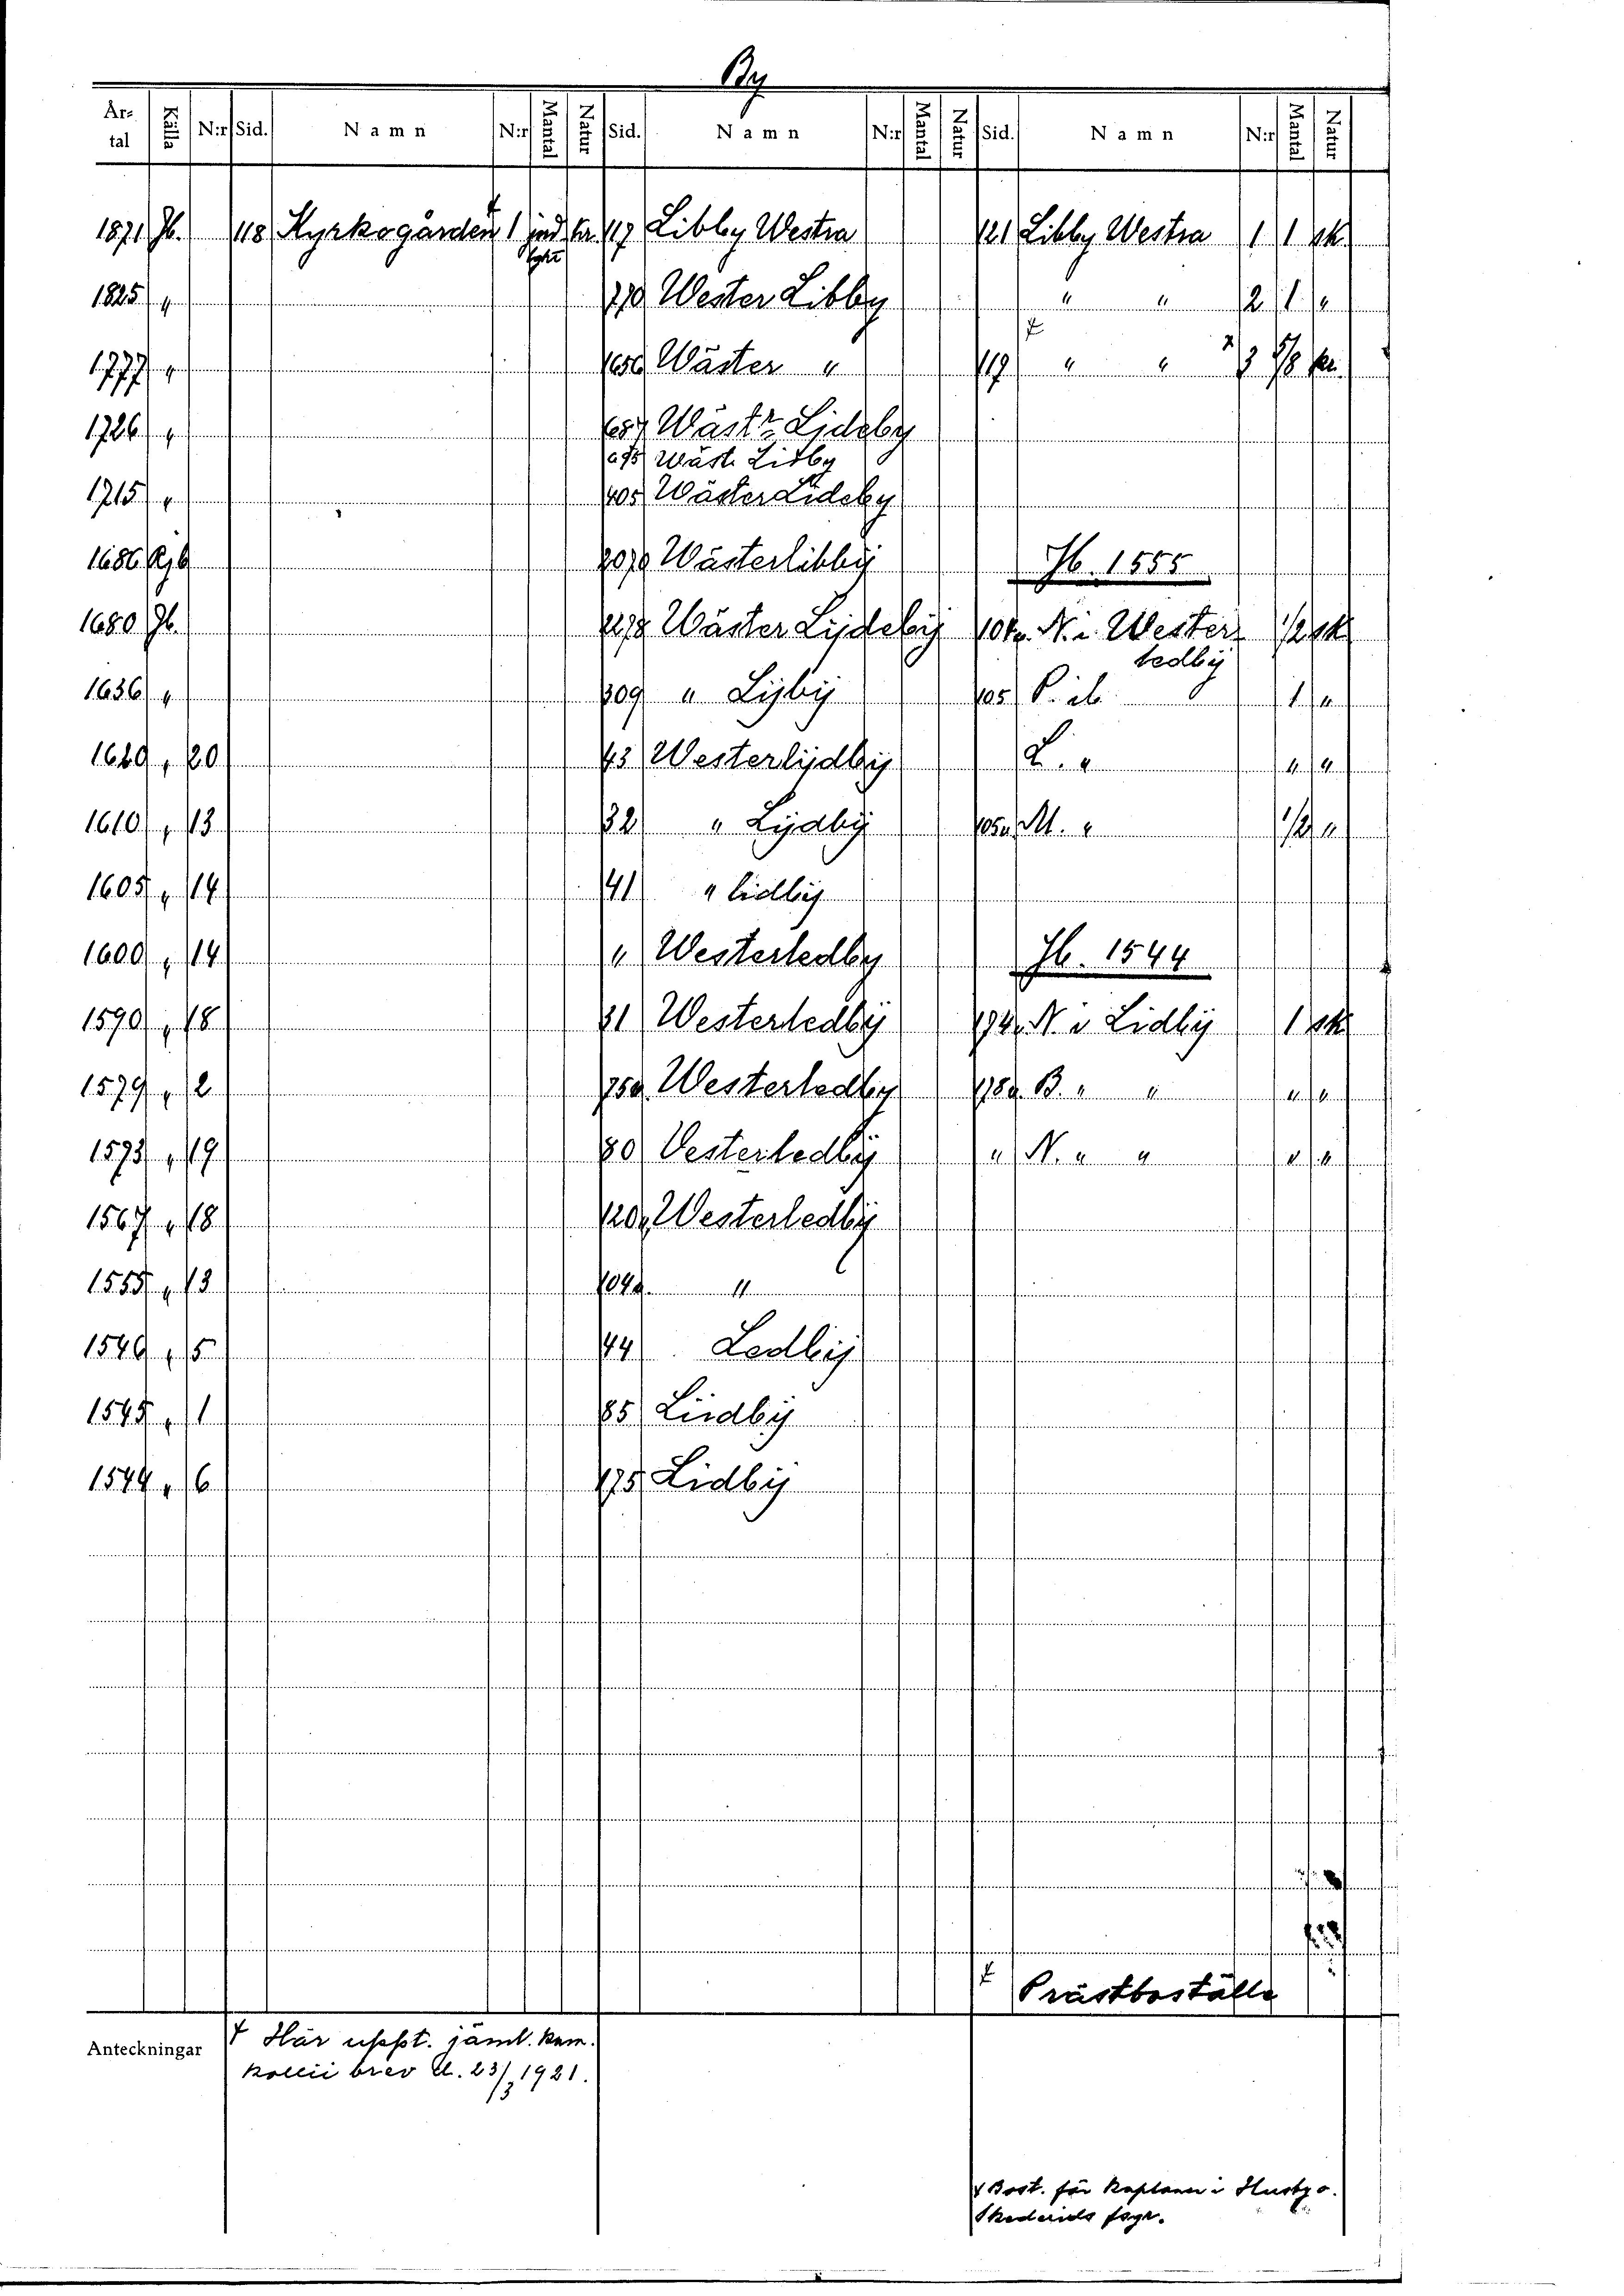 By
År-tal Källa N:r Sid. Namn N:r Mantal Natur Sid. Namn N:r Mantal Natur Sid. Namn N:r Mantal Natur
1871 Jb. 118 Kyrkogården 1 jord kr. 117 Libby Westra 121 Libby Westra 1 1 sk
lght
1825 " 770 Wester Libby " " 2 1 "
1777 " 656 Wäster " 119 " " 3 5/8 kr.
1726 " 657 Wästr Lideby
675 Wäst. Lidby
1715 " 405 Wäster Lideby
1686 Rjb 2079 Wästerlibbÿ Jb. 1555
1680 Jb. 2278 Wäster Lÿdebÿ 104v. N. i. Wester 1/2 sk
ledbÿ
1636 " 309 " Lÿbÿ 105 P. ib. 1 "
1620 " 20 43 Westerlÿdbÿ L. " " "
1610 " 13 32 " Lÿdbÿ 105v. M. " 1/2 "
1605 " 14 41 " lidbÿ
1600 " 14 " Westerledby Jb. 1544
1590 " 18 31 Westerledbÿ 174v. N. i Lidbÿ 1 sk
1579 " 2 75v. Westerledby 175v. B. " " " "
1573 " 19 80 Vesterledbÿ " N. " " " "
1567 " 18 120v. Westerledbÿ
1555 " 13 104v. "
1546 " 5 44 Ledbÿ
1545 " 1 85 Liidbÿ
1544 " 6 175 Lidbÿ
Prästboställe
Anteckningar
† Här uppt. jäml. kam.
kollii brev d. 23/3 1921.
Bost. för kaplanen i Husby o.
Skederids fsgr.